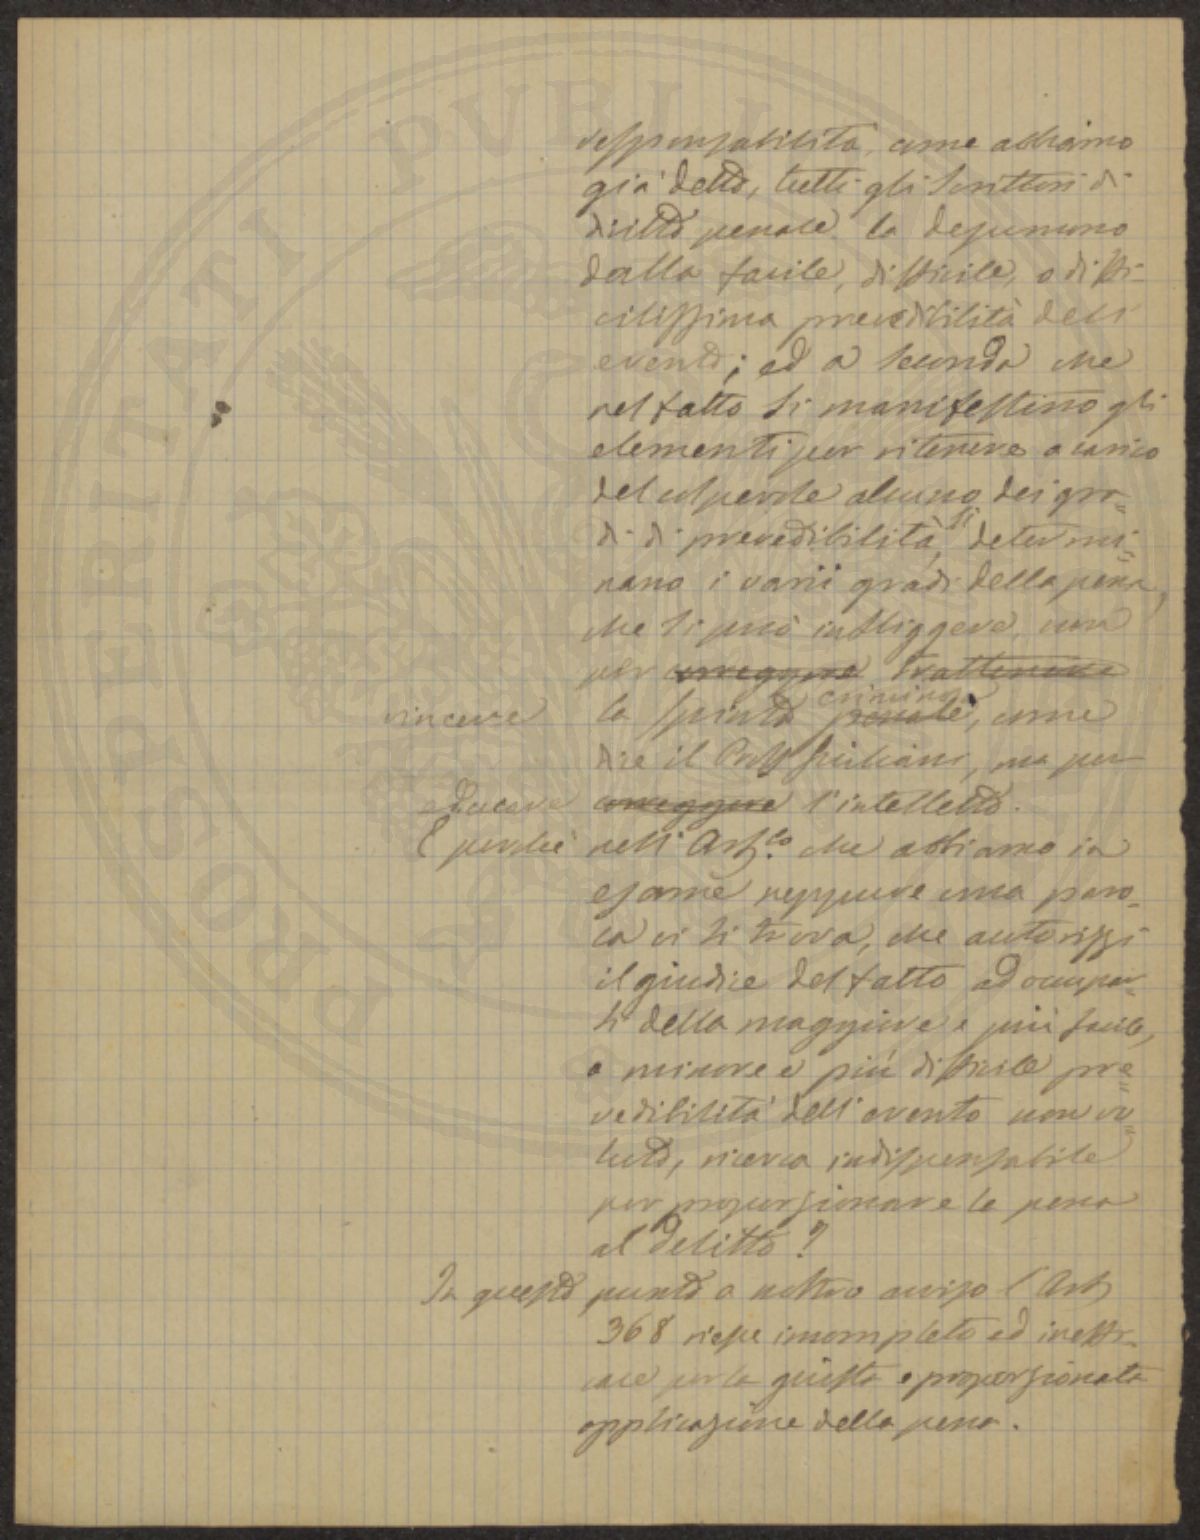 responsabilità, come abbiamo
già detto, tutti gli Scrittori di
diritto penale la desumono
dalla facile, difficile, o diffi-
cilissima prevedibilità dell'
evento; ed a seconda che
nel fatto si manifestino gli
elementi per ritenere a carico
del colpevole alcuno dei gra=
di di prevedibilità, si determi=
nano i varii gradi della pena,
che si può infliggere, non
per correggere trattenere
vincere la spinta penale criminosa, come
dice il Giuliani, ma per
educare correggere l'intelletto.
E perchè nell'Art.lo che abbiamo in
esame neppure una paro=
la vi si trova, che autorizzi
il giudice del fatto ad occupar=
si della maggiore e più facile,
o minore e più difficile pre=
vedibilità dell'evento non vo=
luto, ricerca indispensabile
per proporzionare la pena
al delitto?
In questo punto a nostro avviso l'Art
368 riesce incompleto ed ineffi-
cace per la giusta e proporzionata
applicazione della pena.
PROSPERITATI PUBLI